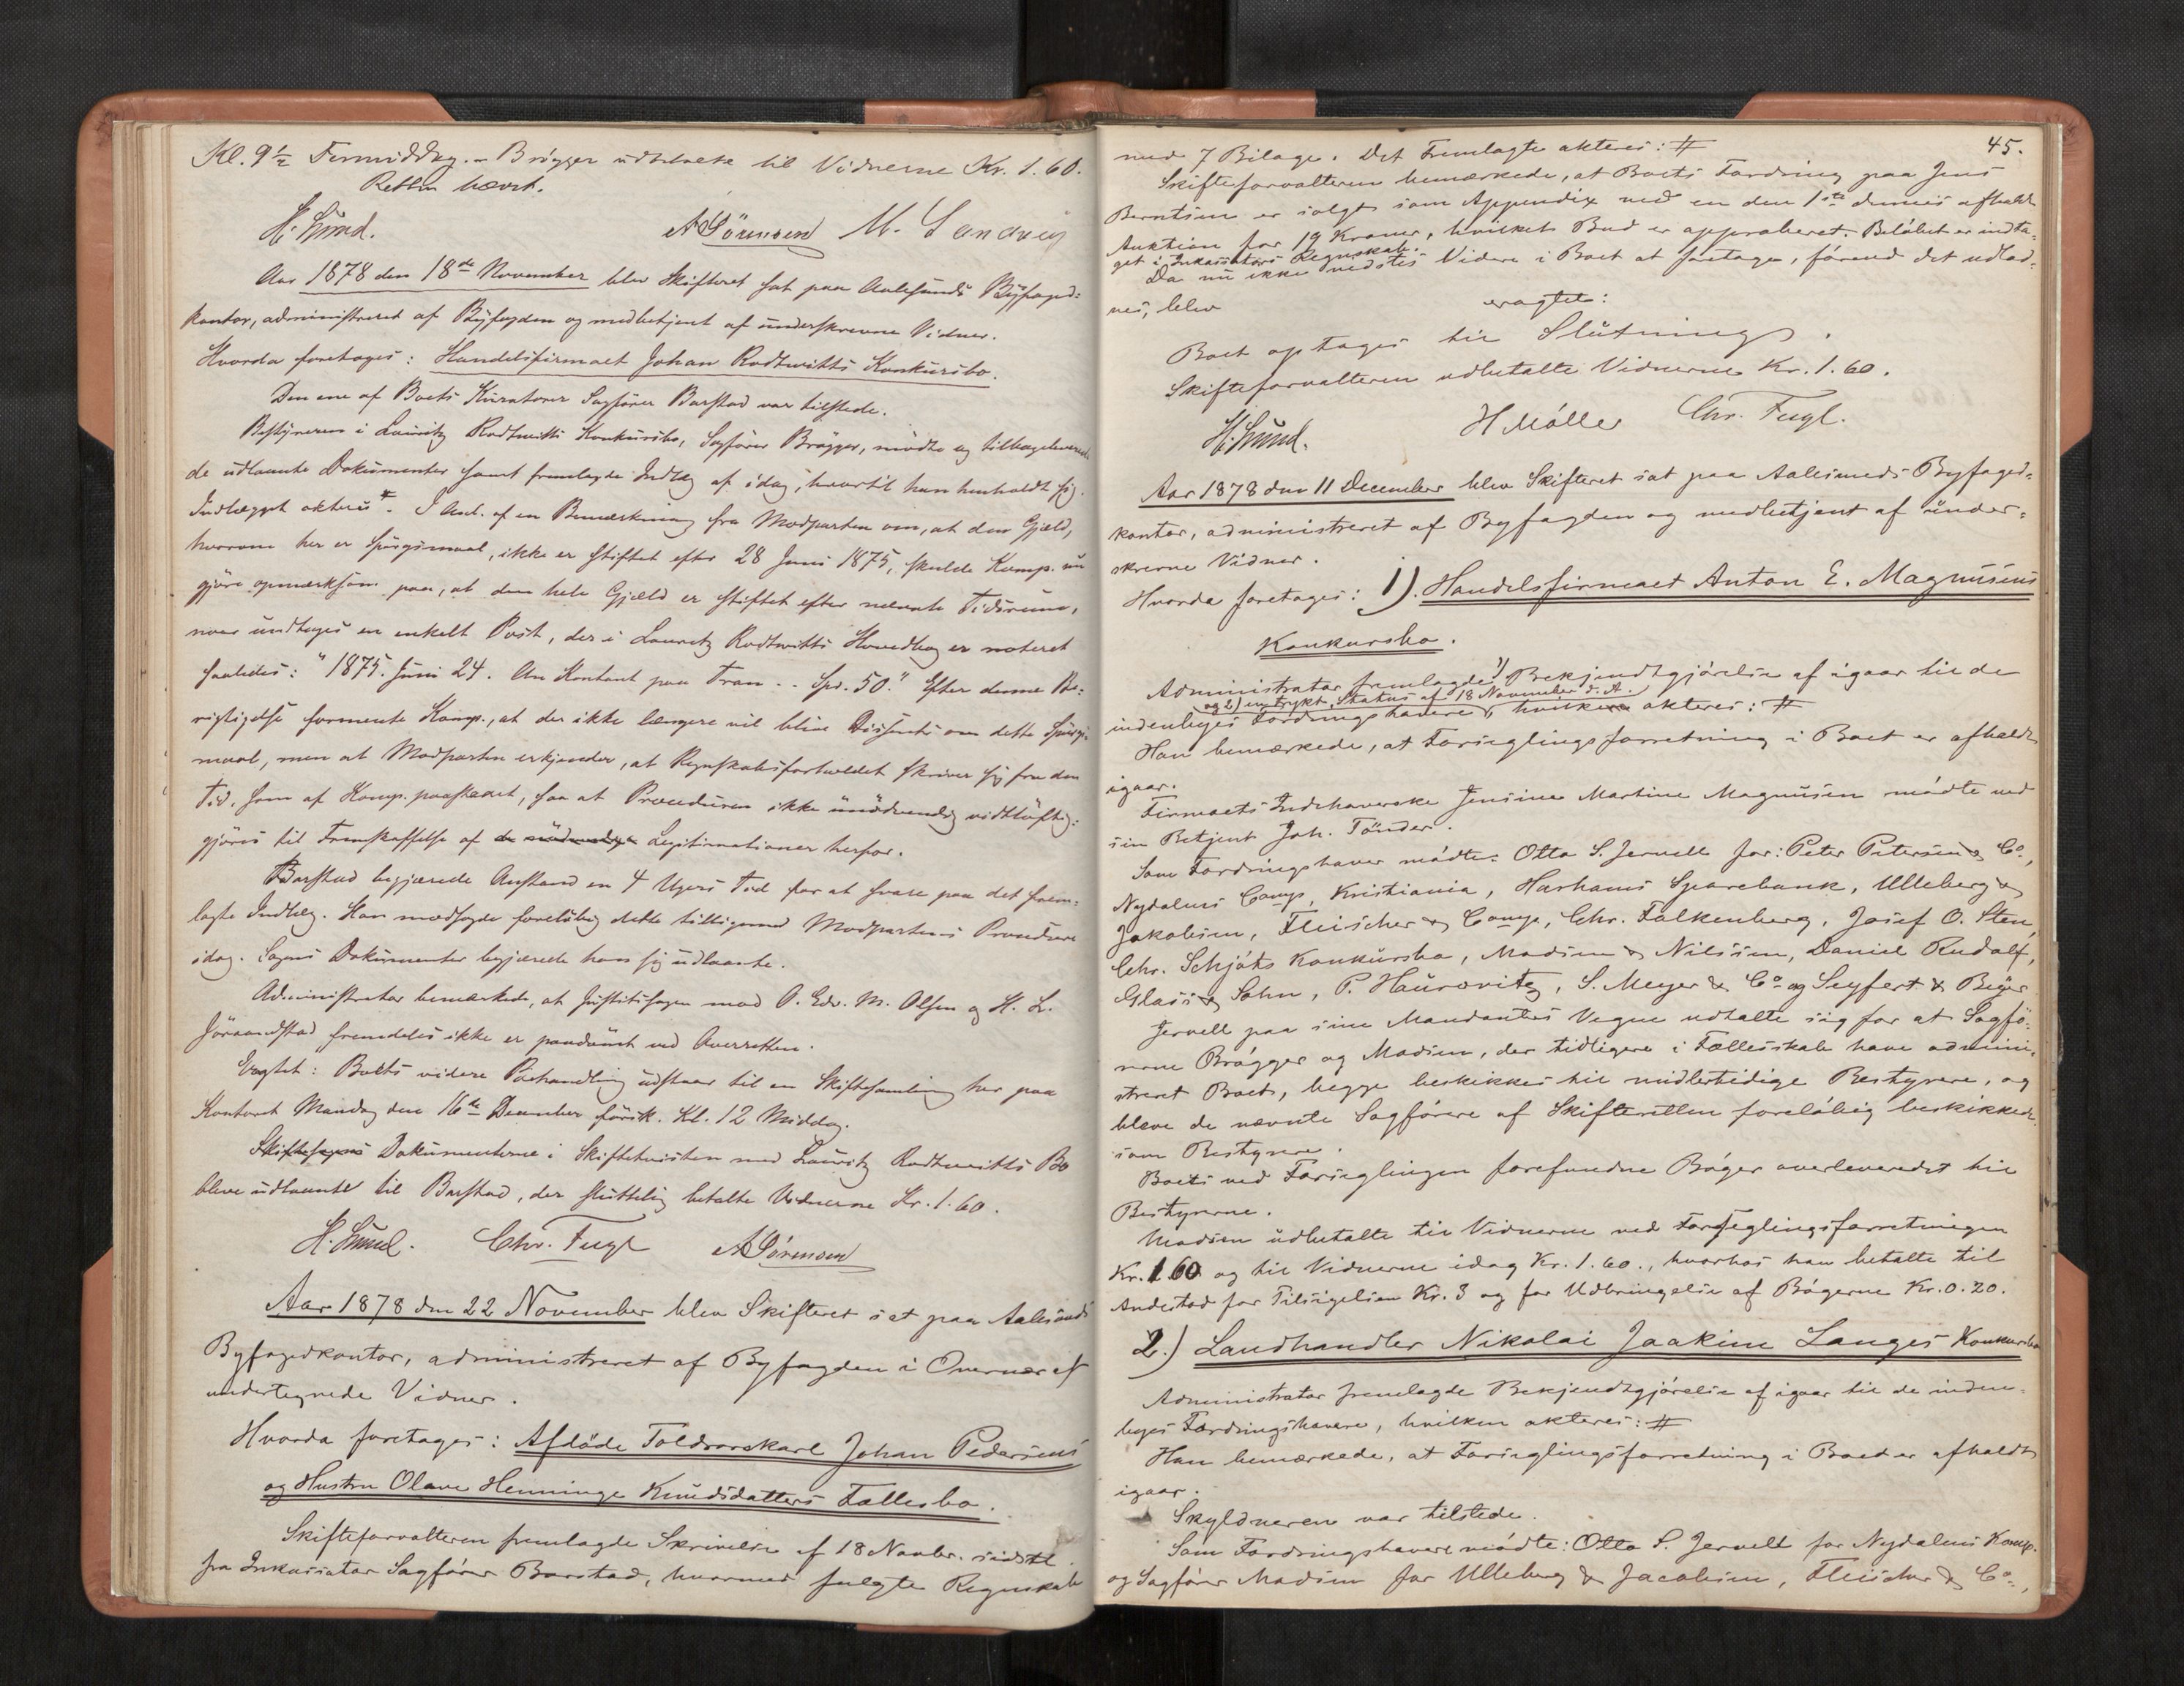 Kl. 9½ Formiddag. – Brøgger udbetalte til Vidnerne Kr. 1.60.
Retten hævet.
H. Lund. A Sörensen M. Sandvig
Aar 1878 den 18de November blev Skifteret sat paa Aalesunds Byfoged-
kontor, administreret af Byfogden og medbetjent af underskrevne Vidner.
Hvorda foretoges: Handelsfirmaet Johan Rodtwitts Konkursbo.
Den ene af Boets Kuratorer Sagfører Barstad var tilstede.
Bestyreren i Lauritz Rodtwitts Konkursbo, Sagfører Brøgger, mødte og tilbageleverede
de udlaante Dokumenter samt fremlagde Indlæg af idag, hvortil han henholdt sig.
Indlægget akteres #. I Anl. af en Bemærkning fra Modparten om, at den Gjæld,
hvorom her er Spørgsmaal, ikke er stiftet efter 28 Juni 1875, skulde Komp. nu
gjøre opmærksom paa, at den hele Gjæld er stiftet efter nævnte Tidsrum,
naar undtages en enkelt Post, der i Lauritz Rodtwitts Hovedbog er noteret
saaledes: "1875. Juni 24. An Kontant paa Tran .. Spd. 50." Efter denne Be-
rigtigelse formente Komp., at der ikke længere vil blive Dissents om dette Spørgs-
maal, men at Modparten erkjender, at Regnskabsforholdet skriver sig fra den
Tid, som af Komp. paastaaet, saa at Proceduren ikke unødvendig vidtløftig-
gjøres til Fremskaffelse af de nødvendige Legitimationer herfor.
Barstad begjærede Anstand en 4 Ugers Tid for at svare paa det frem-
lagte Indlæg. Han modsagde foreløbig dette tilligemed Modpartens Procedure
idag. Sagens Dokumenter begjærede han sig udlaante.
Administrator bemærkede, at Justitssagen mod O. Edv. M. Olsen og H. L.
Jöraandstad fremdeles ikke er paadømt ved Overretten.
Eragtet: Boets videre Behandling udstaar til en Skiftesamling her paa
Kontoret Mandag den 16de December førstk. Kl. 12 Middag.
Skiftesagens Dokumenterne i Skiftetvisten med Lauritz Rodtwitts Bo
bleve udlaante til Barstad, der sluttelig betalte Vidnerne Kr. 1.60.
H. Lund. Chr. Fugl A Sörensen
Aar 1878 den 22 November blev Skifteret sat paa Aalesunds
Byfogedkontor, administreret af Byfogden i Overvær af
undertegnede Vidner.
Hvorda foretages: Afdöde Toldrorskarl Johan Pedersens
og Hustru Olave Henninge Knudsdatters Fællesbo.
Skifteforvalteren fremlagde Skrivelse af 18 Novbr. sidstl.
fra Inkassator Sagfører Barstad, hvormed fulgte Regnskab
45.
med 7 Bilage. Det Fremlagte akteres: #
Skifteforvalteren bemærkede, at Boets Fordring paa Jens
Berntsen er solgt som Appendix ved en den 1ste dennes afholdt
Auktion for 19 Kroner, hvilket Bud er approberet. Beløbet er indta-
get i Inkassators Regnskab.
Da nu ikke vidstes Videre i Boet at foretage, førend det udlod-
nes, blev
eragtet:
Boet optages til Slutning.
Skifteforvalteren udbetalte Vidnerne Kr. 1.60.
H. Lund. H Möller Chr. Fugl.
Aar 1878 den 11 December blev Skifteret sat paa Aalesunds Byfoged-
kontor, administreret af Byfogden og medbetjent af under-
skrevne Vidner.
Hvorda foretages: 1). Handelsfirmaet Anton E. Magnusens
Konkursbo.
Administrator fremlagde 1) Bekjendtgjørelse af igaar til de
og 2) en trykt Status af 18 November d. A.
indenbyes Fordringshavere, hvilken akteres: #
Han bemærkede, at Forseglingsforretning i Boet er afholdt
igaar.
Firmaets Indehaverske Jensine Martine Magnusen mødte ved
sin Betjent Joh. Tönder.
Som Fordringshaver mødte: Otto S. Jervell for: Peter Petersen & Co,
Nydalens Comp, Kristiania, Harhams Sparebank, Ulleberg &
Jakobsen, Fleischer & Comp, Chr. Falkenberg, Josef O. Sten,
Chr. Schjøts Konkursbo, Madsen & Nilssen, Daniel Rudolf,
Glass & Sohn, P. Haurovitz, S. Meyer & Co og Seyfert & Beyer
Jervell paa sine Mandanters Vegne udtalte sig for at Sagfø-
rerne Brøgger og Madsen, der tidligere i Fællesskab have admini-
streret Boet, begge beskikkes til midlertidige Bestyrere, og
bleve de nævnte Sagførere af Skifteretten foreløbig beskikkede
som Bestyrere.
Boets ved Forseglingen forefundne Bøger overleveredes til
Bestyrerne.
Madsen udbetalte til Vidnerne ved Forseglingsforretningen
Kr. 1.60 og til Vidnerne idag Kr. 1.60., hvorhos han betalte til
Andestad for Tilsigelsen Kr. 3 og for Udbringelse af Bøgerne Kr. 0.20.
2.) Landhandler Nikolai Joakim Langes Konkursbo
Administrator fremlagde Bekjendtgjørelse af igaar til de inden-
byes Fordringshavere, hvilken akteres: #
Han bemærkede, at Forseglingsforretning i Boet er afholdt
igaar.
Skyldneren var tilstede.
Som Fordringshavere mødte: Otto S. Jervell for Nydalens Komp.
og Sagfører Madsen for Ulleberg & Jacobsen, Fleischer & Co,